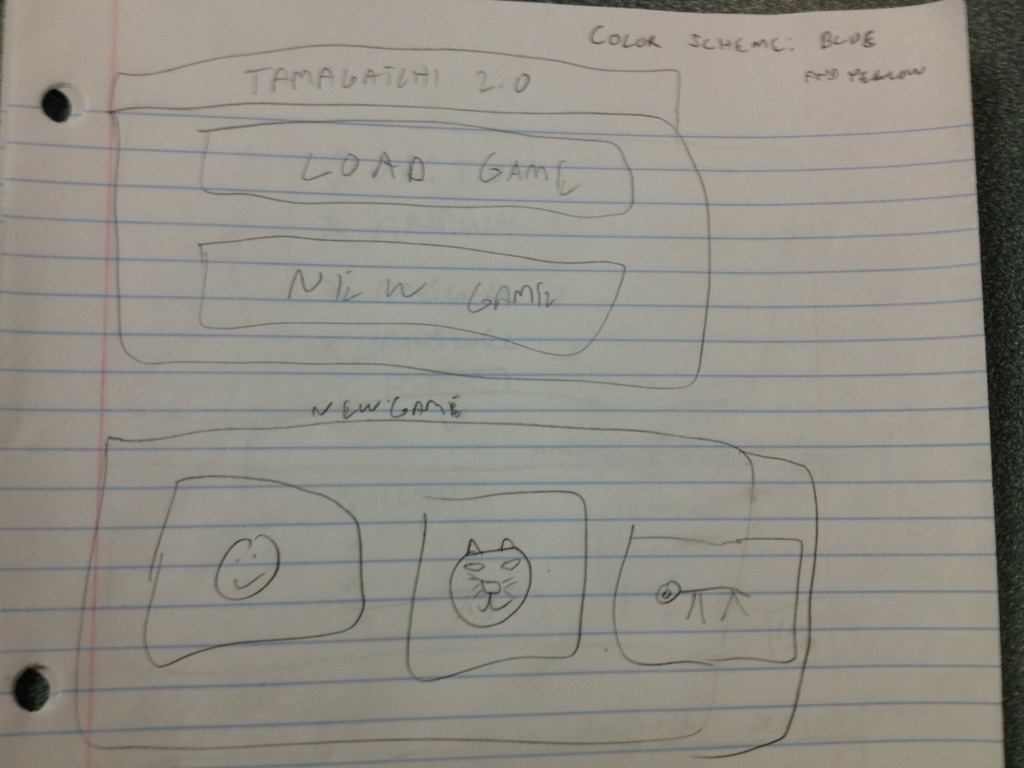 COLOR SCHEME: BLUE
AND YELLOW
TAMAGATCHI 2.0
LOAD GAME
NEW GAME
NEW GAME